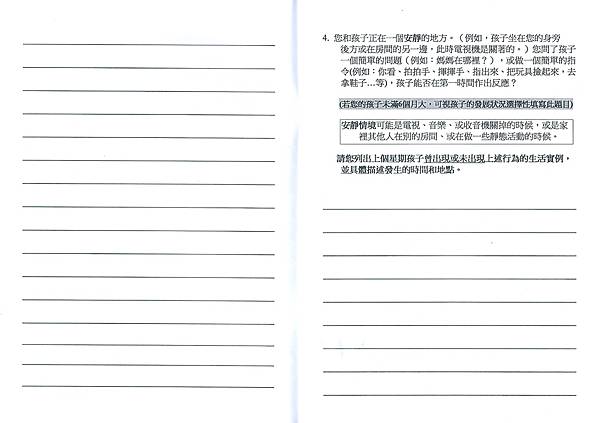 4. 您和孩子正在一個安靜的地方。（例如，孩子坐在您的身旁
後方或在房間的另一邊，此時電視機是關著的。）您問了孩子
一個簡單的問題（例如：媽媽在哪裡？），或做一個簡單的指
令(例如：你看、拍拍手、揮揮手、指出來、把玩具撿起來，去
拿鞋子…等)，孩子能否在第一時間作出反應？
(若您的孩子未滿6個月大，可視孩子的發展狀況選擇性填寫此題目)
安靜情境可能是電視、音樂、或收音機關掉的時候，或是家
裡其他人在別的房間、或在做一些靜態活動的時候。
請您列出上個星期孩子曾出現或未出現上述行為的生活實例，
並具體描述發生的時間和地點。